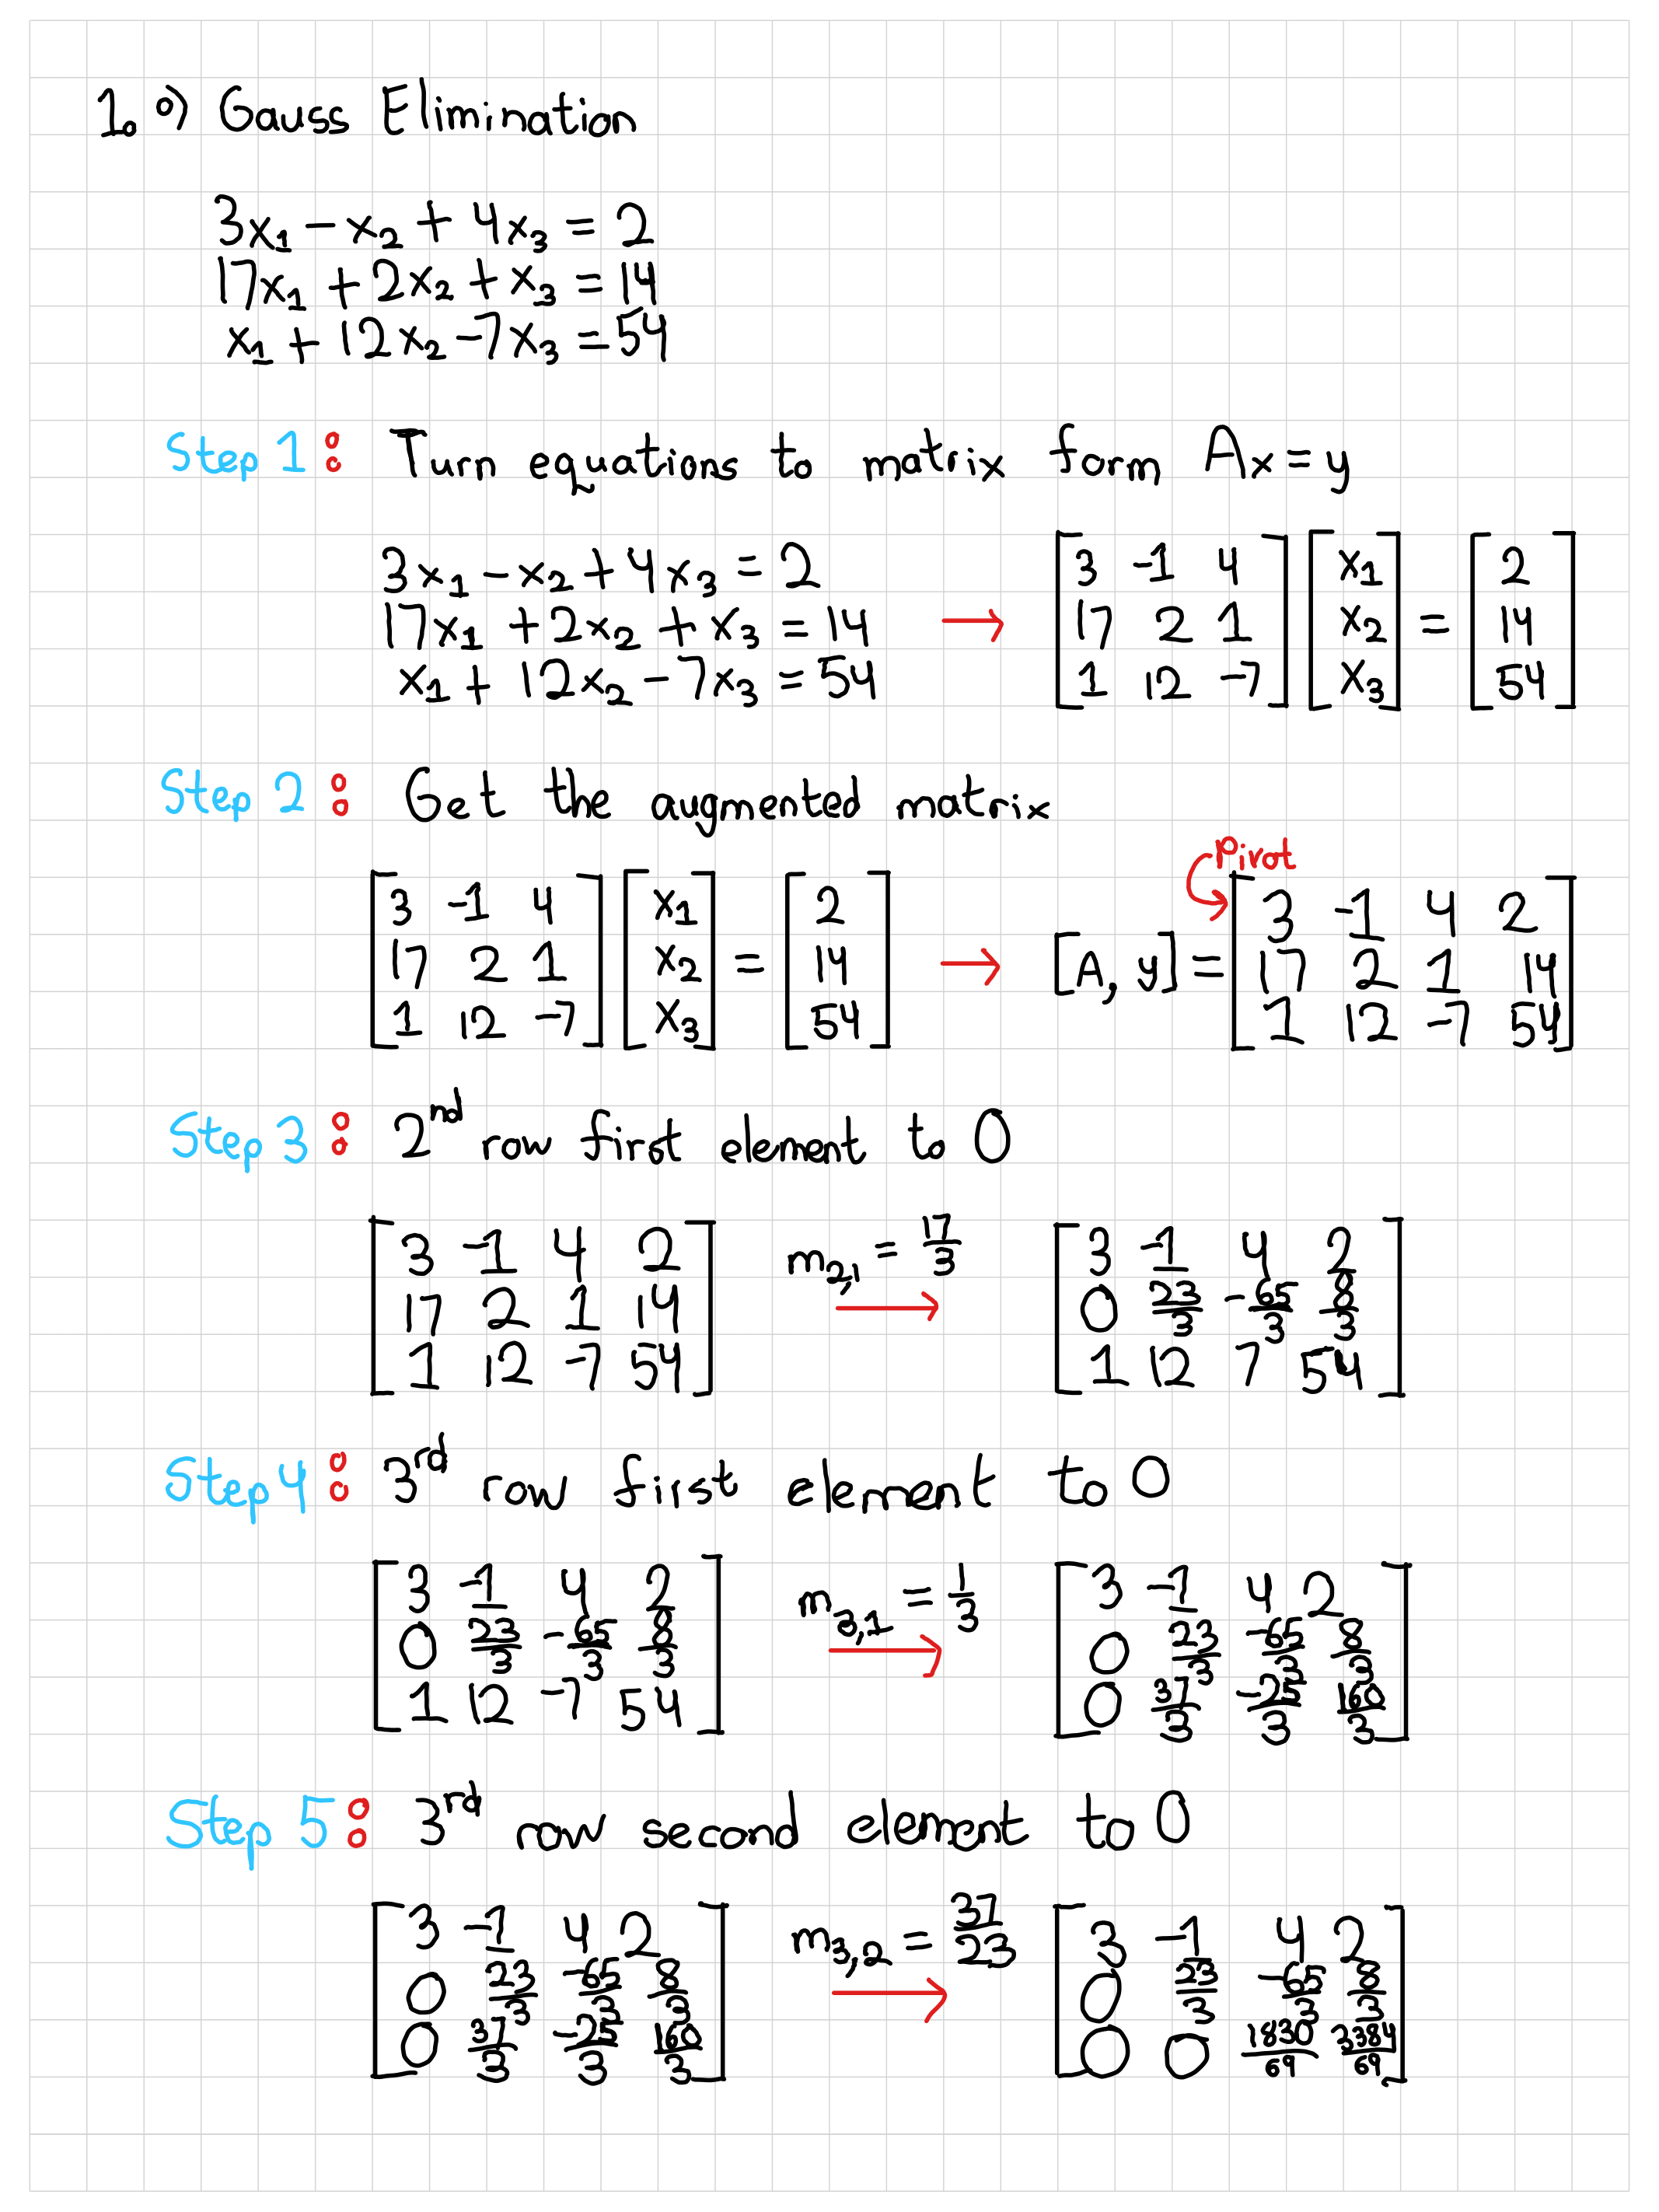 1.a) Gauss Elimination
3x₁ - x₂ + 4x₃ = 2
17x₁ + 2x₂ + x₃ = 14
x₁ + 12x₂ - 7x₃ = 54
Step 1: Turn equations to matrix form Ax = y
3x₁ - x₂ + 4x₃ = 2
17x₁ + 2x₂ + x₃ = 14 → [3 -1 4; 17 2 1; 1 12 -7] [x₁; x₂; x₃] = [2; 14; 54]
x₁ + 12x₂ - 7x₃ = 54
Step 2: Get the augmented matrix
Pivot
[3 -1 4; 17 2 1; 1 12 -7] [x₁; x₂; x₃] = [2; 14; 54] → [A, y] = [3 -1 4 2; 17 2 1 14; 1 12 -7 54]
Step 3: 2nd row first element to 0
[3 -1 4 2; 17 2 1 14; 1 12 -7 54] m₂,₁ = 17/3 → [3 -1 4 2; 0 23/3 -65/3 8/3; 1 12 7 54]
Step 4: 3rd row first element to 0
[3 -1 4 2; 0 23/3 -65/3 8/3; 1 12 -7 54] m₃,₁ = 1/3 → [3 -1 4 2; 0 23/3 -65/3 8/3; 0 37/3 -25/3 160/3]
Step 5: 3rd row second element to 0
[3 -1 4 2; 0 23/3 -65/3 8/3; 0 37/3 -25/3 160/3] m₃,₂ = 37/23 → [3 -1 4 2; 0 23/3 -65/3 8/3; 0 0 1830/69 3384/69]